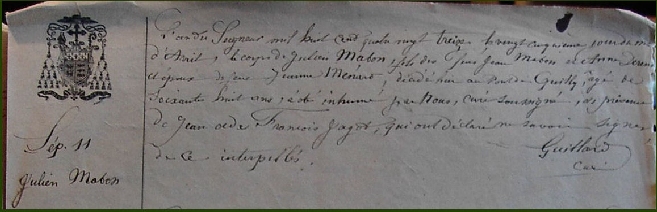 Sép. 11
Julien Mabon
L'an du Seigneur mil huit cent quatre vingt treize le vingt cinquieme jour du mois
d'Avril, le corps de Julien Mabon, fils des feus Jean Mabon et Anne
et époux de feue Jeanne Menard, décédé hier au de Quilly, âgé de
soixante huit ans, a été inhumé par Nous, curé soussigné, en présence
de Jean et de François Jagot, qui ont déclaré ne savoir signer
de ce interpellés.
Guillard
Curé